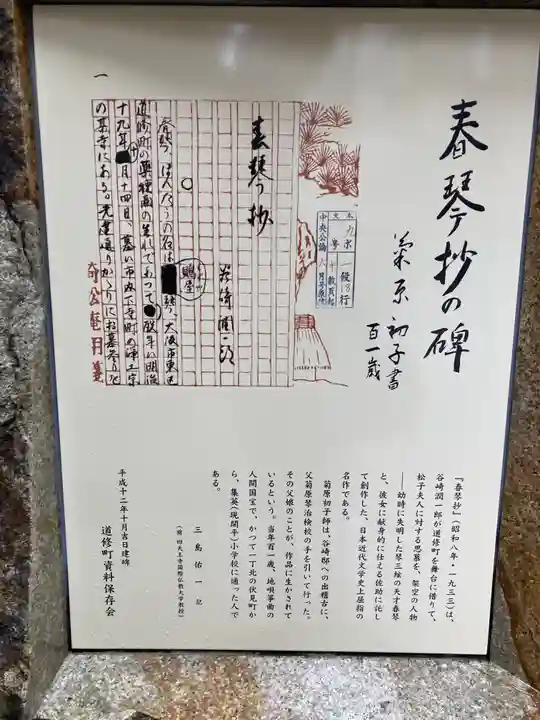 春琴抄の碑
菊原初子書
百一歳
一
春琴抄
谷崎潤一郎
春琴、ほんたうの名は
鵙屋
琴、大阪市東区
道修町の薬種商の生れで
歿年は明治
十九年
月十四日、墓は市内下寺町の浄土宗
の某寺にある。先達通りかゝりにお墓参りを
本文
九ポ
一段
18行
中央公論
六月号原稿
『春琴抄』(昭和八年・一九三三)は、
谷崎潤一郎が道修町を舞台に借りて、
松子夫人に対する思慕を、架空の人物
――幼時に失明した琴三絃の天才春琴
と、彼女に献身的に仕える佐助に託し
て創作した、日本近代文学史上屈指の
名作である。
菊原初子師は、谷崎邸への出稽古に、
父菊原琴治検校の手を引いて行った。
その父娘のことが、作品に生かされて
いるという。当年百一歳、地唄箏曲の
人間国宝で、かつて一丁北の伏見町か
ら、集英(現開平)小学校に通った人で
ある。
三島佑一 記
(前 四天王寺国際仏教大学教授)
平成十二年十月吉日建碑
道修町資料保存会